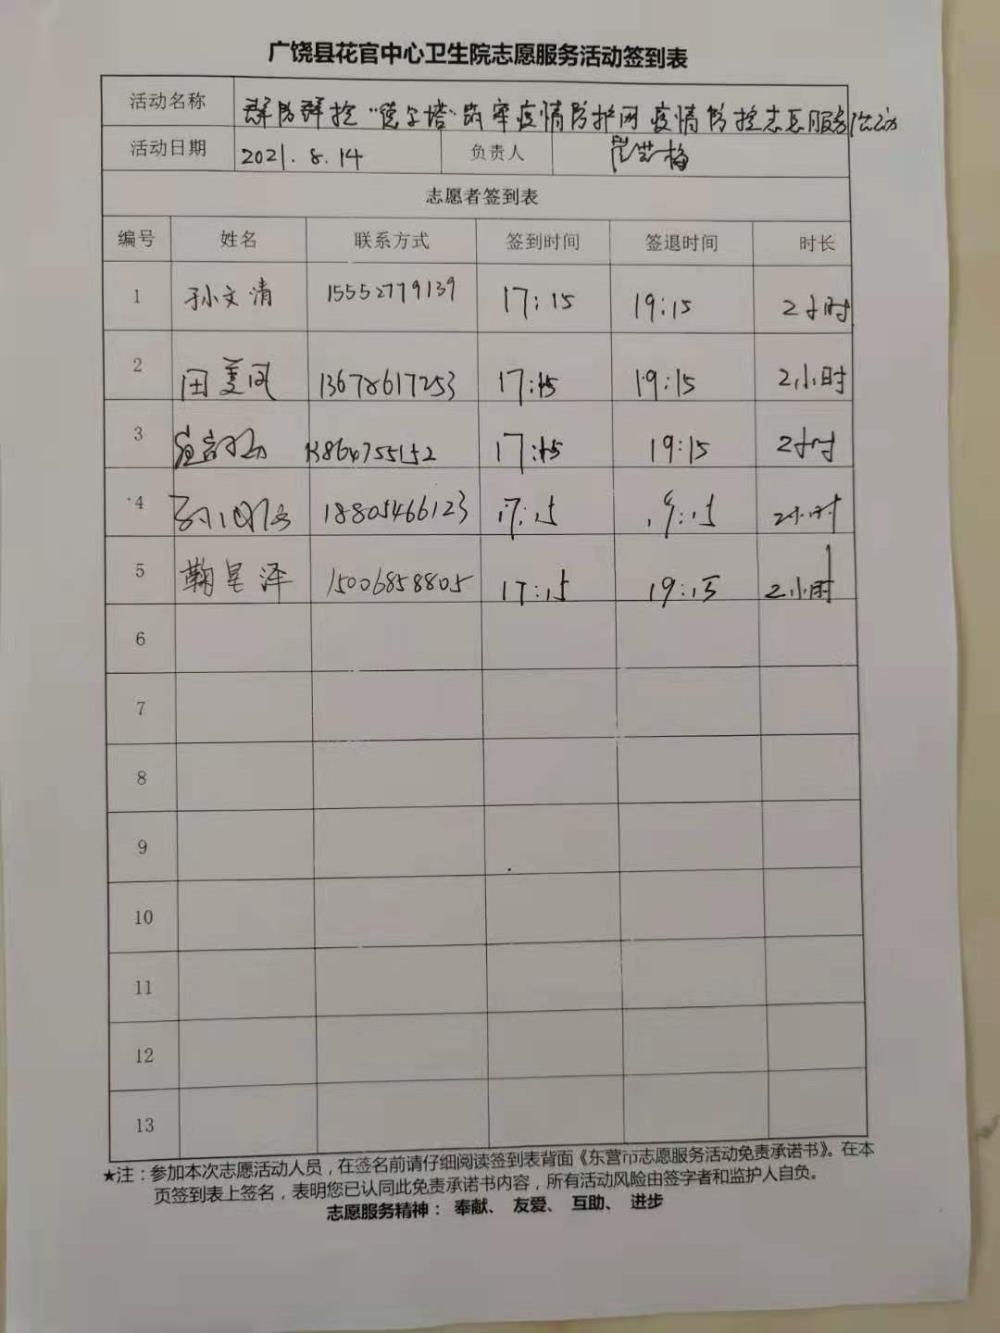 广饶县花官中心卫生院志愿服务活动签到表
活动名称 群防群控“德尔塔”筑牢疫情防护网 疫情防控志愿服务活动
活动日期 2021.8.14 负责人
志愿者签到表
编号 姓名 联系方式 签到时间 签退时间 时长
1 孙文清 15552779139 17:15 19:15 2小时
2 田美凤 13678617253 17:15 19:15 2小时
3 13864755152 17:15 19:15 2小时
4 18805466123 17:15 19:15 2小时
5 鞠星泽 15006858805 17:15 19:15 2小时
6
7
8
9
10
11
12
13
★注：参加本次志愿活动人员，在签名前请仔细阅读签到表背面《东营市志愿服务活动免责承诺书》。在本
页签到表上签名，表明您已认同此免责承诺书内容，所有活动风险由签字者和监护人自负。
志愿服务精神： 奉献、 友爱、 互助、 进步